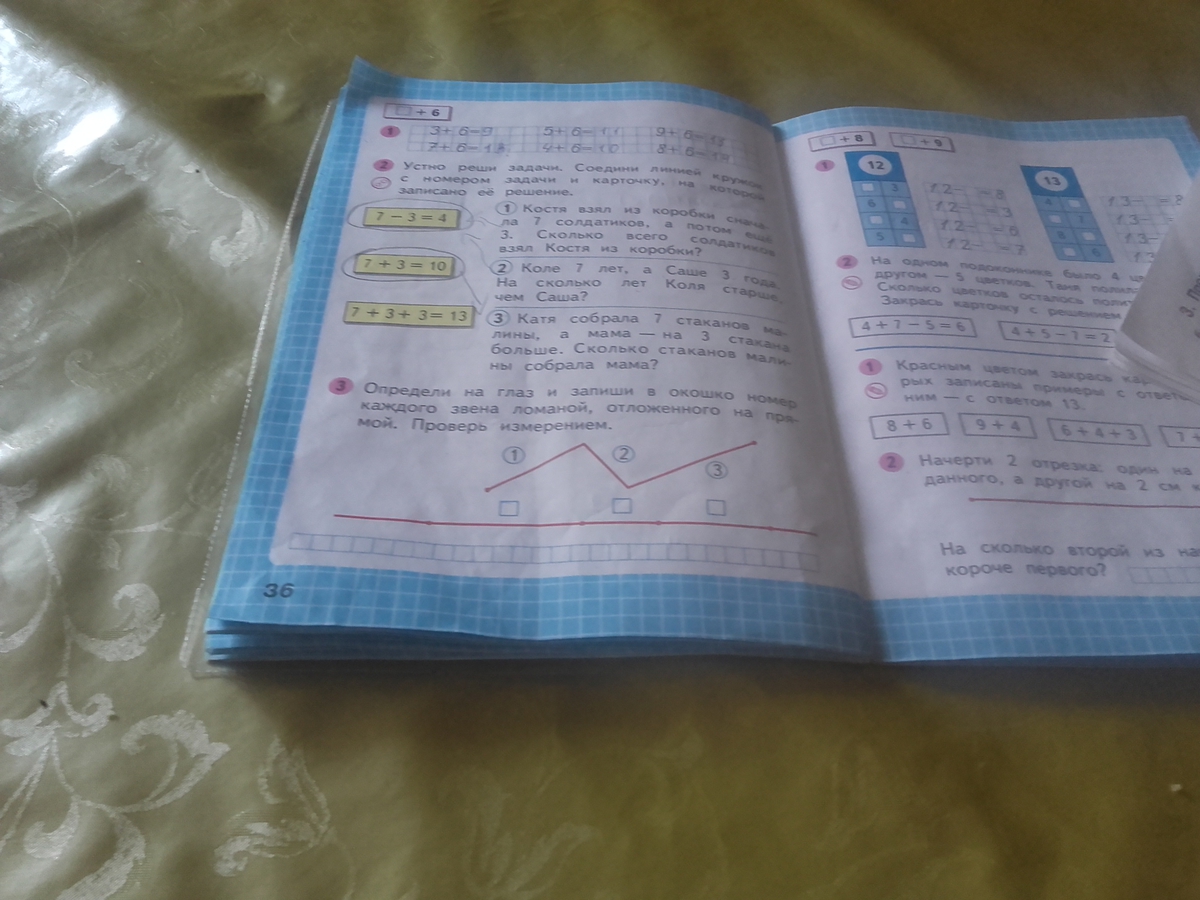 □ + 6
1
3+6=9 5+6=11 9+6=15
7+6=13 4+6=10 8+6=14
2 Устно реши задачи. Соедини линией кружок
с номером задачи и карточку, на которой
записано её решение.
7 − 3 = 4
7 + 3 = 10
7 + 3 + 3 = 13
1 Костя взял из коробки снача-
ла 7 солдатиков, а потом ещё
3. Сколько всего солдатиков
взял Костя из коробки?
2 Коле 7 лет, а Саше 3 года.
На сколько лет Коля старше,
чем Саша?
3 Катя собрала 7 стаканов ма-
лины, а мама — на 3 стакана
больше. Сколько стаканов мали-
ны собрала мама?
3 Определи на глаз и запиши в окошко номер
каждого звена ломаной, отложенного на пря-
мой. Проверь измерением.
1 2 3
36
□ + 8 □ + 9
1
12
□ 3
6 □
□ 4
5 □
12− =8
12− =3
12− =6
12− =7
13
4 □
□ 7
8 □
□ 6
13− =8
13−
13−
13
2 На одном подоконнике было 4
другом — 5 цветков. Таня
Сколько цветков осталось
Закрась карточку с решением
4 + 7 − 5 = 6
4 + 5 − 7 = 2
1 Красным цветом закрась
рых записаны примеры с
ним — с ответом 13.
8 + 6
9 + 4
6 + 4 + 3
7
2 Начерти 2 отрезка: один на
данного, а другой на 2 см
На сколько второй из
короче первого?